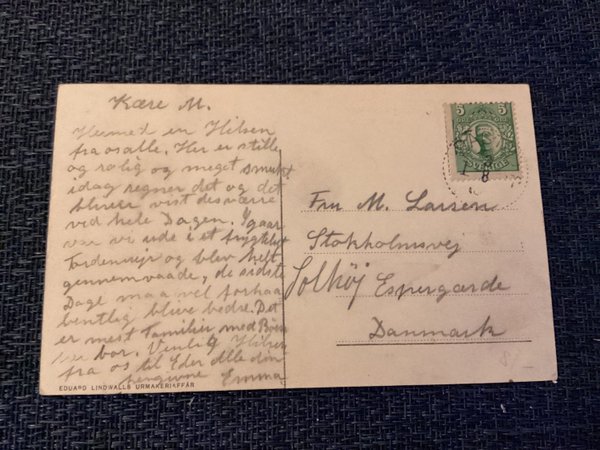 Kære M.
Hermed en Hilsen
fra os alle. Her er stille
og rolig og meget smukt
idag regner det og det
bliver vist desværre
ved hele Dagen. I gaar
var vi ude i et frygteligt
Tordenvejr og blev helt
gennemvaade, de sidste
Dage maa vel forhaa
bentlig blive bedre. Det
er mest Familier med Børn
bor. Venlig Hilsen
fra os til Eder Alle din
hengivne Emma
EDUARD LINDWALLS URMAKERIAFFÄR
5 5
SVERIGE
8
Fru M. Larsen
Stokholmsvej
Solhöj Espergærde
Danmark